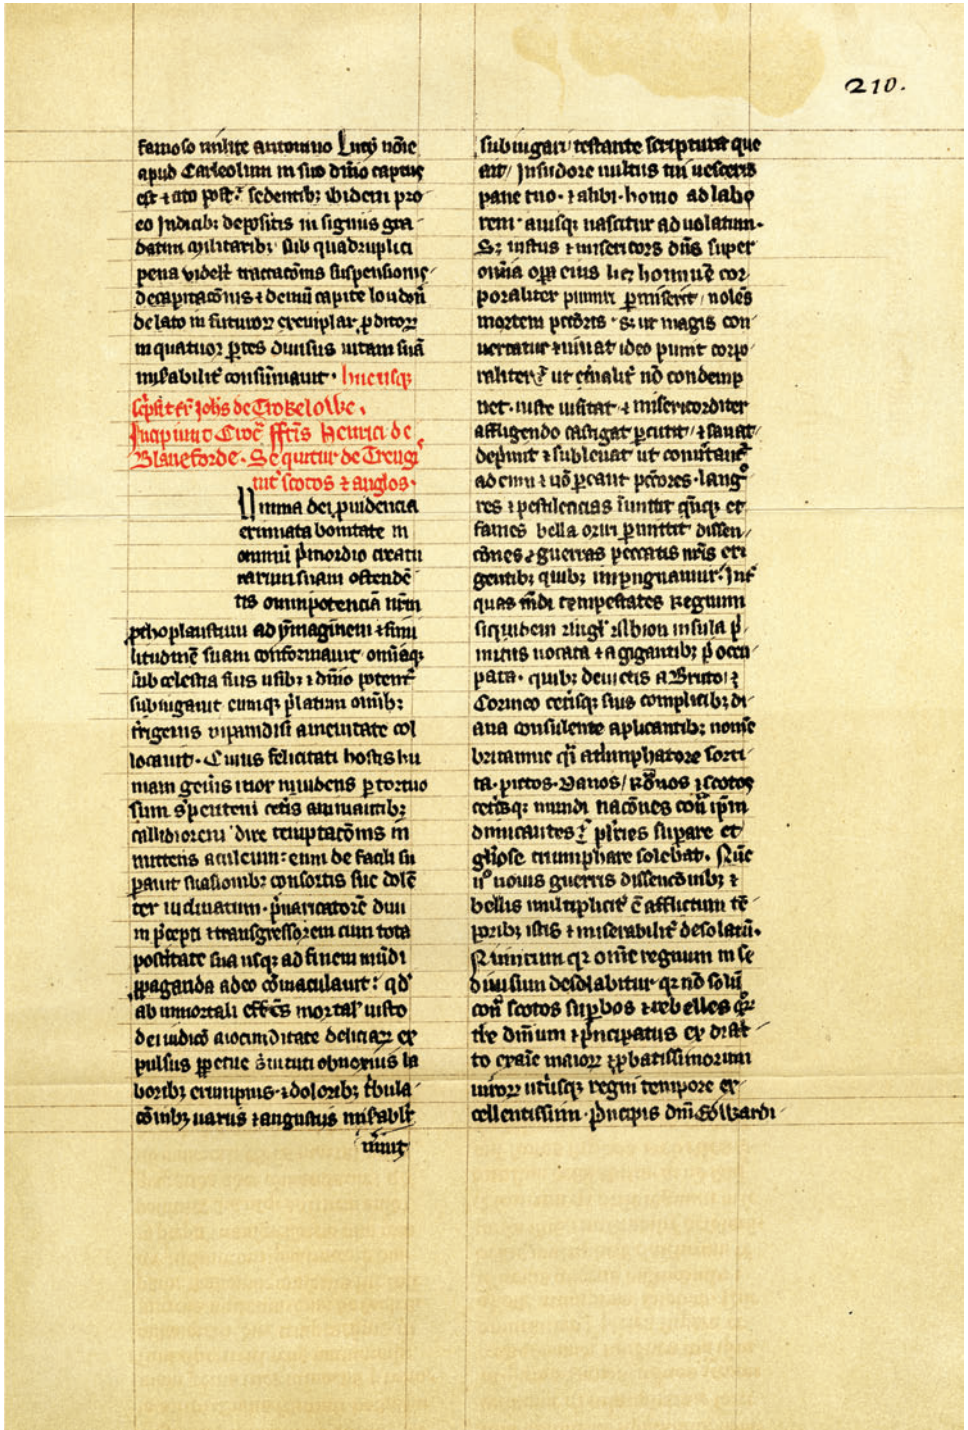 210.
famoso milite antonino Lucy nōīe
apud Carleolum in suo dn̄io captus
est ⁊ cito post: sedentibꝫ ibidem pro
eo Judicibꝫ depositis in signis gra-
datim militaribꝫ sub quadruplici
pena videlt tractacōnis suspensionis
decapitacōnis ⁊ demū capite londoñ
delato in futuroꝝ exemplar ꝓditoꝝ
in quatuor ꝑtes diuisus uitam suā
mis̄abilit̄ consūmauit. hucusqꝫ
sc̄psit fr̄ Joh̄is de Trokelowe.
Incipiunt Croc̄ ffr̄is Henrici de
Blaneforde. Sequitur de Treugi
int̄ scotos ⁊ anglos.
Umma dei ꝓuidencia
eternata bonitate in
omniū p̄mordio creatu
rarum suam ostendē
tis omnipotenciā nr̄m
ꝓthoplaustum ad ymaginem ⁊ simi
litudinē suam conformauit omīaqꝫ
sub celestia suis usibꝫ ⁊ dn̄io potent̄
subiugauit eumqꝫ p̄latum omībꝫ
t̄rigenis in paradisi amenitate col
locauit. Cuius felicitati hostis hu
mani gen̄is liuor inuidens ꝑ tortuo
sum s̄pentem cet̄is animantibꝫ
callidiorem dire temptacōnis in
mittens aculeum: eum de facili su
ꝑauit suasionibꝫ consortis sue dolē
ter inclinatum. p̄uaricatorē diui
ni p̄cepti ⁊ transgressorem cum tota
post̄itate sua usqꝫ ad finem mūdi
ꝓpaganda adeo cōmaculauit: qd̄
ab inmortali eff̄cs mortal̄ iusto
dei iudico a iocunditate deliciaꝝ ex
pulsus ꝑpetue s̄uituti obnoxius la
boribꝫ erumpnis. ⁊ doloribꝫ t̄bula-
cōnibꝫ uariis ⁊ angustiis mis̄abilit̄
subiugari testante scriptura que
ait/ In sudore uultus tui uesceris
pane tuo. ⁊ alibi. homo ad labo
rem. auisqꝫ nascitur ad uolatum.
Sꝫ iustus ⁊ misericors dn̄s super
omīa oꝑa eius licꝫ hominē cor-
poraliter puniri ꝑmiserit/ nolēs
mortem pctōris. sꝫ ut magis con-
uertatur ⁊ uiuat ideo punit corpo-
raliter: ut et̄nalit̄ nō condemp
net. iuste uisitat ⁊ misericorditer
affligendo castigat ꝑcutit/ ⁊ sanat
dep̄mit ⁊ subleuat ut conūtant̄
ad eum ⁊ nō ꝑeant pctōres. lango
res ⁊ pestilencias īmittit qn̄qꝫ et
fames bella oriri ꝑmittit dissen/
cōnes ⁊ guerras peccatis nr̄is exi
gentibꝫ quibꝫ impugnamur. Int̄
quas mūdi tempestates Regnum
siquidem Angl̄ Albion insula p̄-
mitus uocata ⁊ a gigantibꝫ p̄ occu-
pata. quibꝫ deuictis a Bruto: ⁊
Corineo cet̄isqꝫ suis complicibꝫ di
ana consulente aplicantibꝫ nom̄e
britannie q̄i a t̄umphatore sorti-
ta. pictos. Danos/ Romanos ⁊ scotos
cet̄isqꝫ mundi nacōnes cont̄ ip̄m
dimicantes: pl̄ries suꝑare et
gl̄iose triumphare solebat. Nūc
ūo nouis guerris dissencōnibꝫ ⁊
bellis multiplicit̄ ē afflictum tē
poribꝫ istis ⁊ miserabilit̄ desolatū.
Nimirum qꝛ om̄e regnum in se
diuisum desolabitur qꝛ nō solū
cont̄ scotos suꝑbos ⁊ rebelles
dn̄ium ⁊ p̄ncipatus ex
to maioꝝ ⁊ ꝓbatissimorum
uiroꝝ ut̄usqꝫ regni tempore ex-
cellentissimi p̄ncipis dn̄i Edwardi